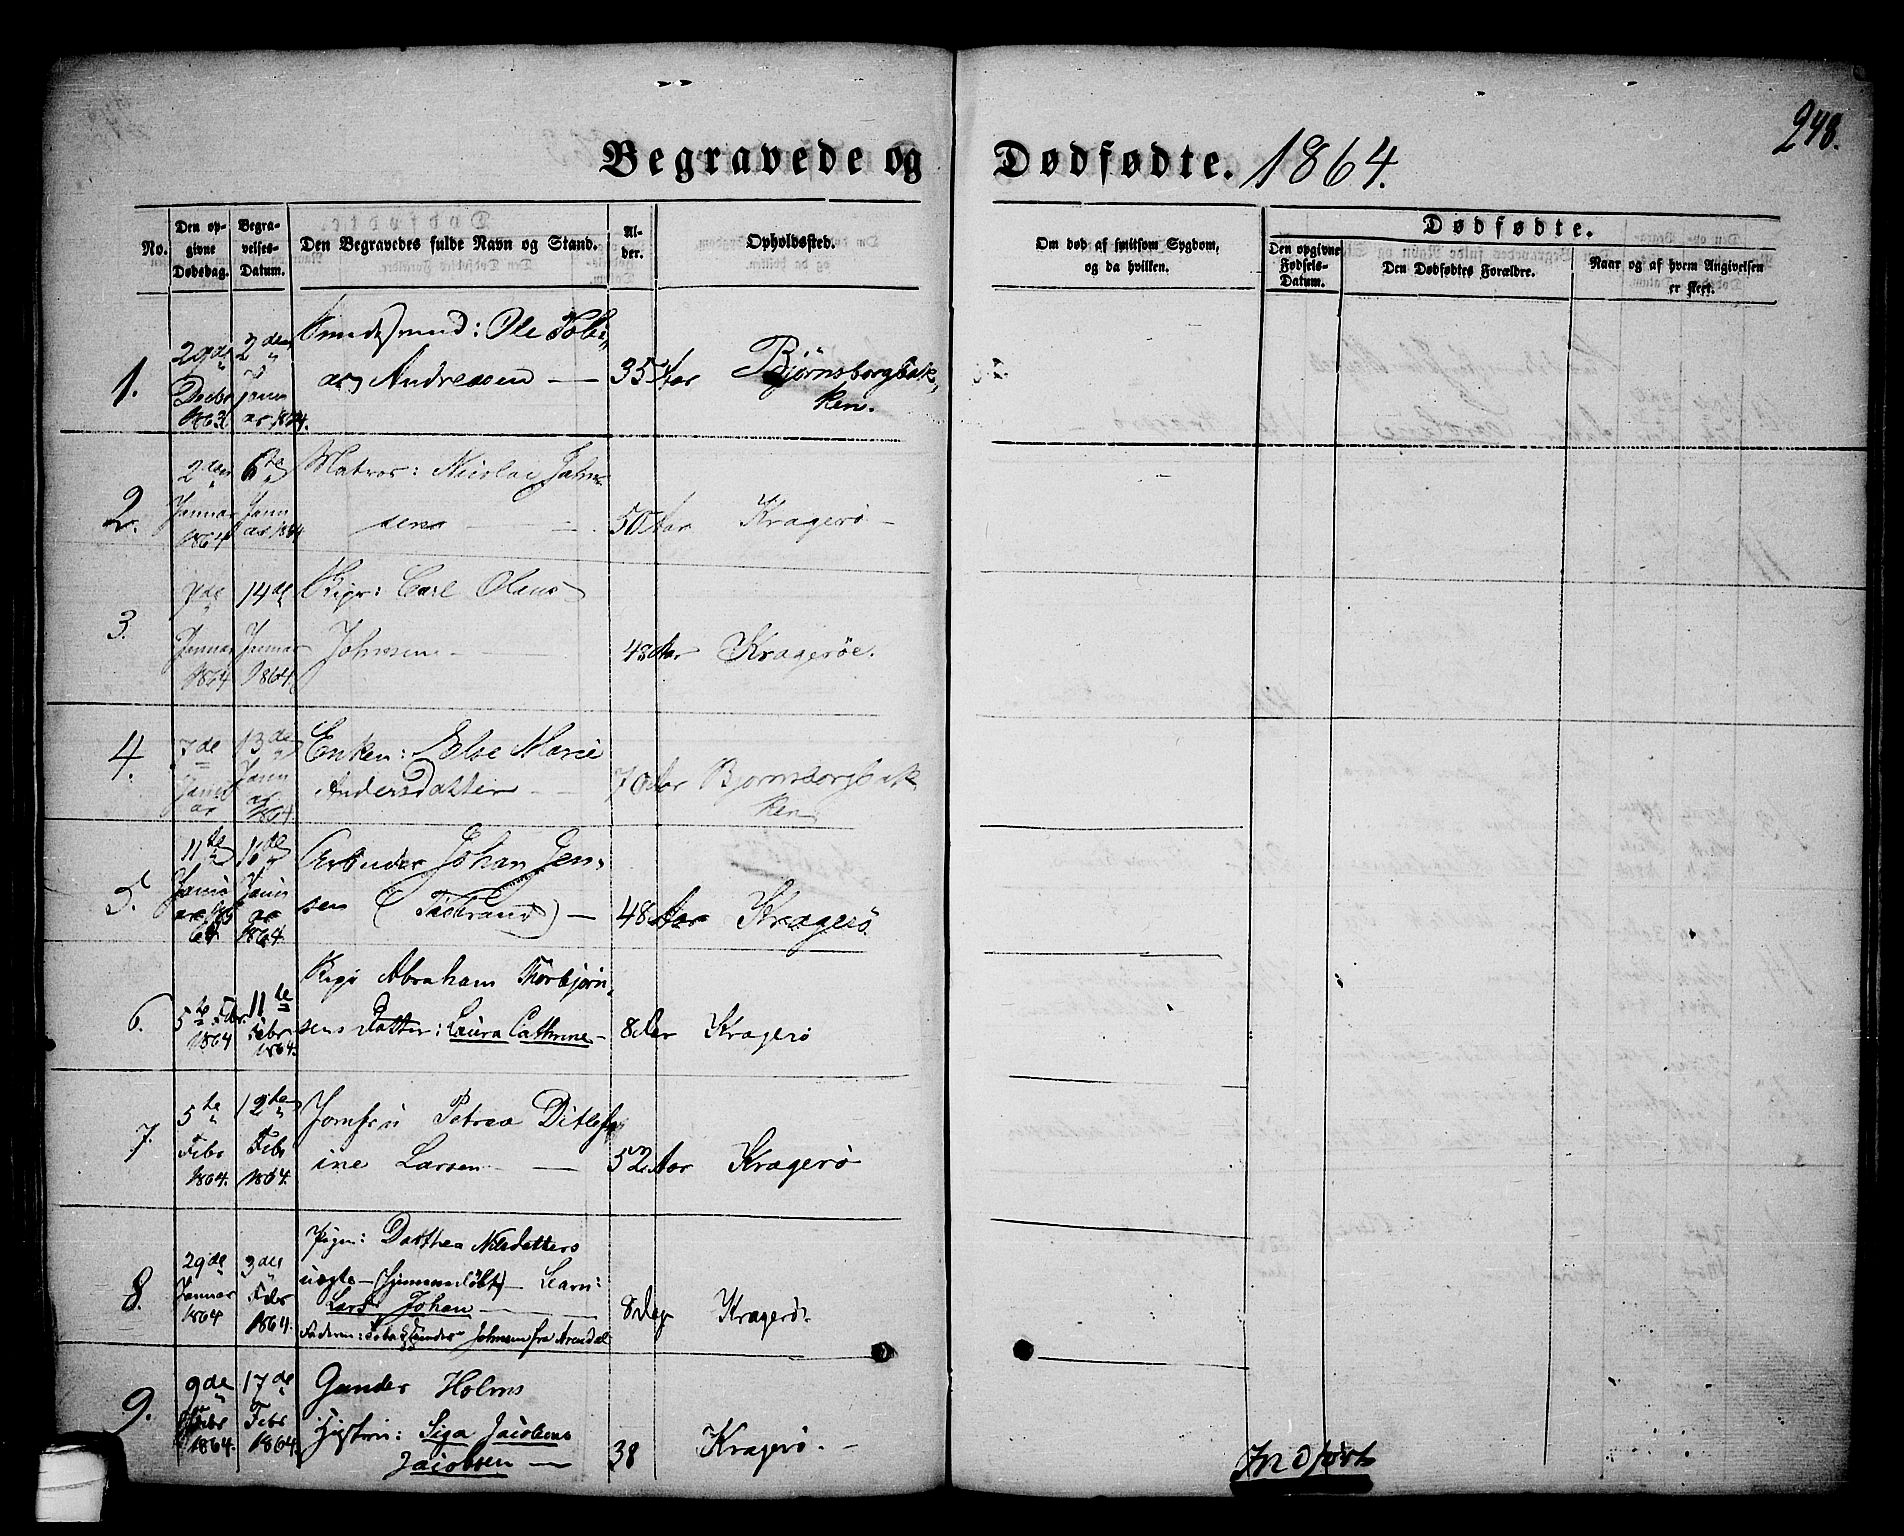 248.
Begravede og Dødfødte. 1864.
No.
Den op-
givne
Dødsdag.
Begra-
velses-
Datum.
Den Begravedes fulde Navn og Stand.
Al-
der.
Opholdssted.
Om død af smitsom Sygdom,
og da hvilken.
Dødfødte.
Den opgivne
Fødsels-
Datum.
Den Dødfødtes Forældre.
Naar og af hvem Angivelsen
er skeet.
1.
29de
Decbr
1863
2den
Janu
ar 1864.
Ole Tobi
as Andresen —
35 Aar
Bjørnsborgbak
ken.
2.
2den
Januar
1864
6te
Janu
ar 1864
Matros: Nicolai John
sen —
50 Aar
Kragerø —
3.
7de
Januar
1864
14de
Januar
1864.
Carl Olaus
Johnsen —
48 Aar
Kragerøe.
4.
7de
Janu
ar
13de
Janu
ar
1864.
Enken: Else Marie
Andersdatter —
70 Aar
Bjørnsborgbak
ken
5.
11te
Janu
ar 18
64.
16de
Janu
ar
1864.
Arbeider Johan Jen-
sen —
48 Aar
Kragerø
6.
5te Febr.
1864
11te
Febr
1864.
Abraham Thorbjørn-
sens Datter: Laura Cathrine —
8
Kragerø
7.
5te
Febr
1864.
12te
Febr
1864.
Jomfru Petrea Ditlef
ine Larsen —
52 Aar
Kragerø
8.
29de
Januar
1864
3die
Febr
1864.
Pigen: Dorthea Nilsdatters
uægte — (hjemmedøbt) — Barn:
Lars Johan —
Faderen: Johnsen fra Arendal
8 Dag
Kragerø.
9.
9de
Febr
1864.
17de
Febr
1864.
Gunder Holms
Hustru: Siga Jacobine
Jacobsen —
38
Kragerø. —
Indført